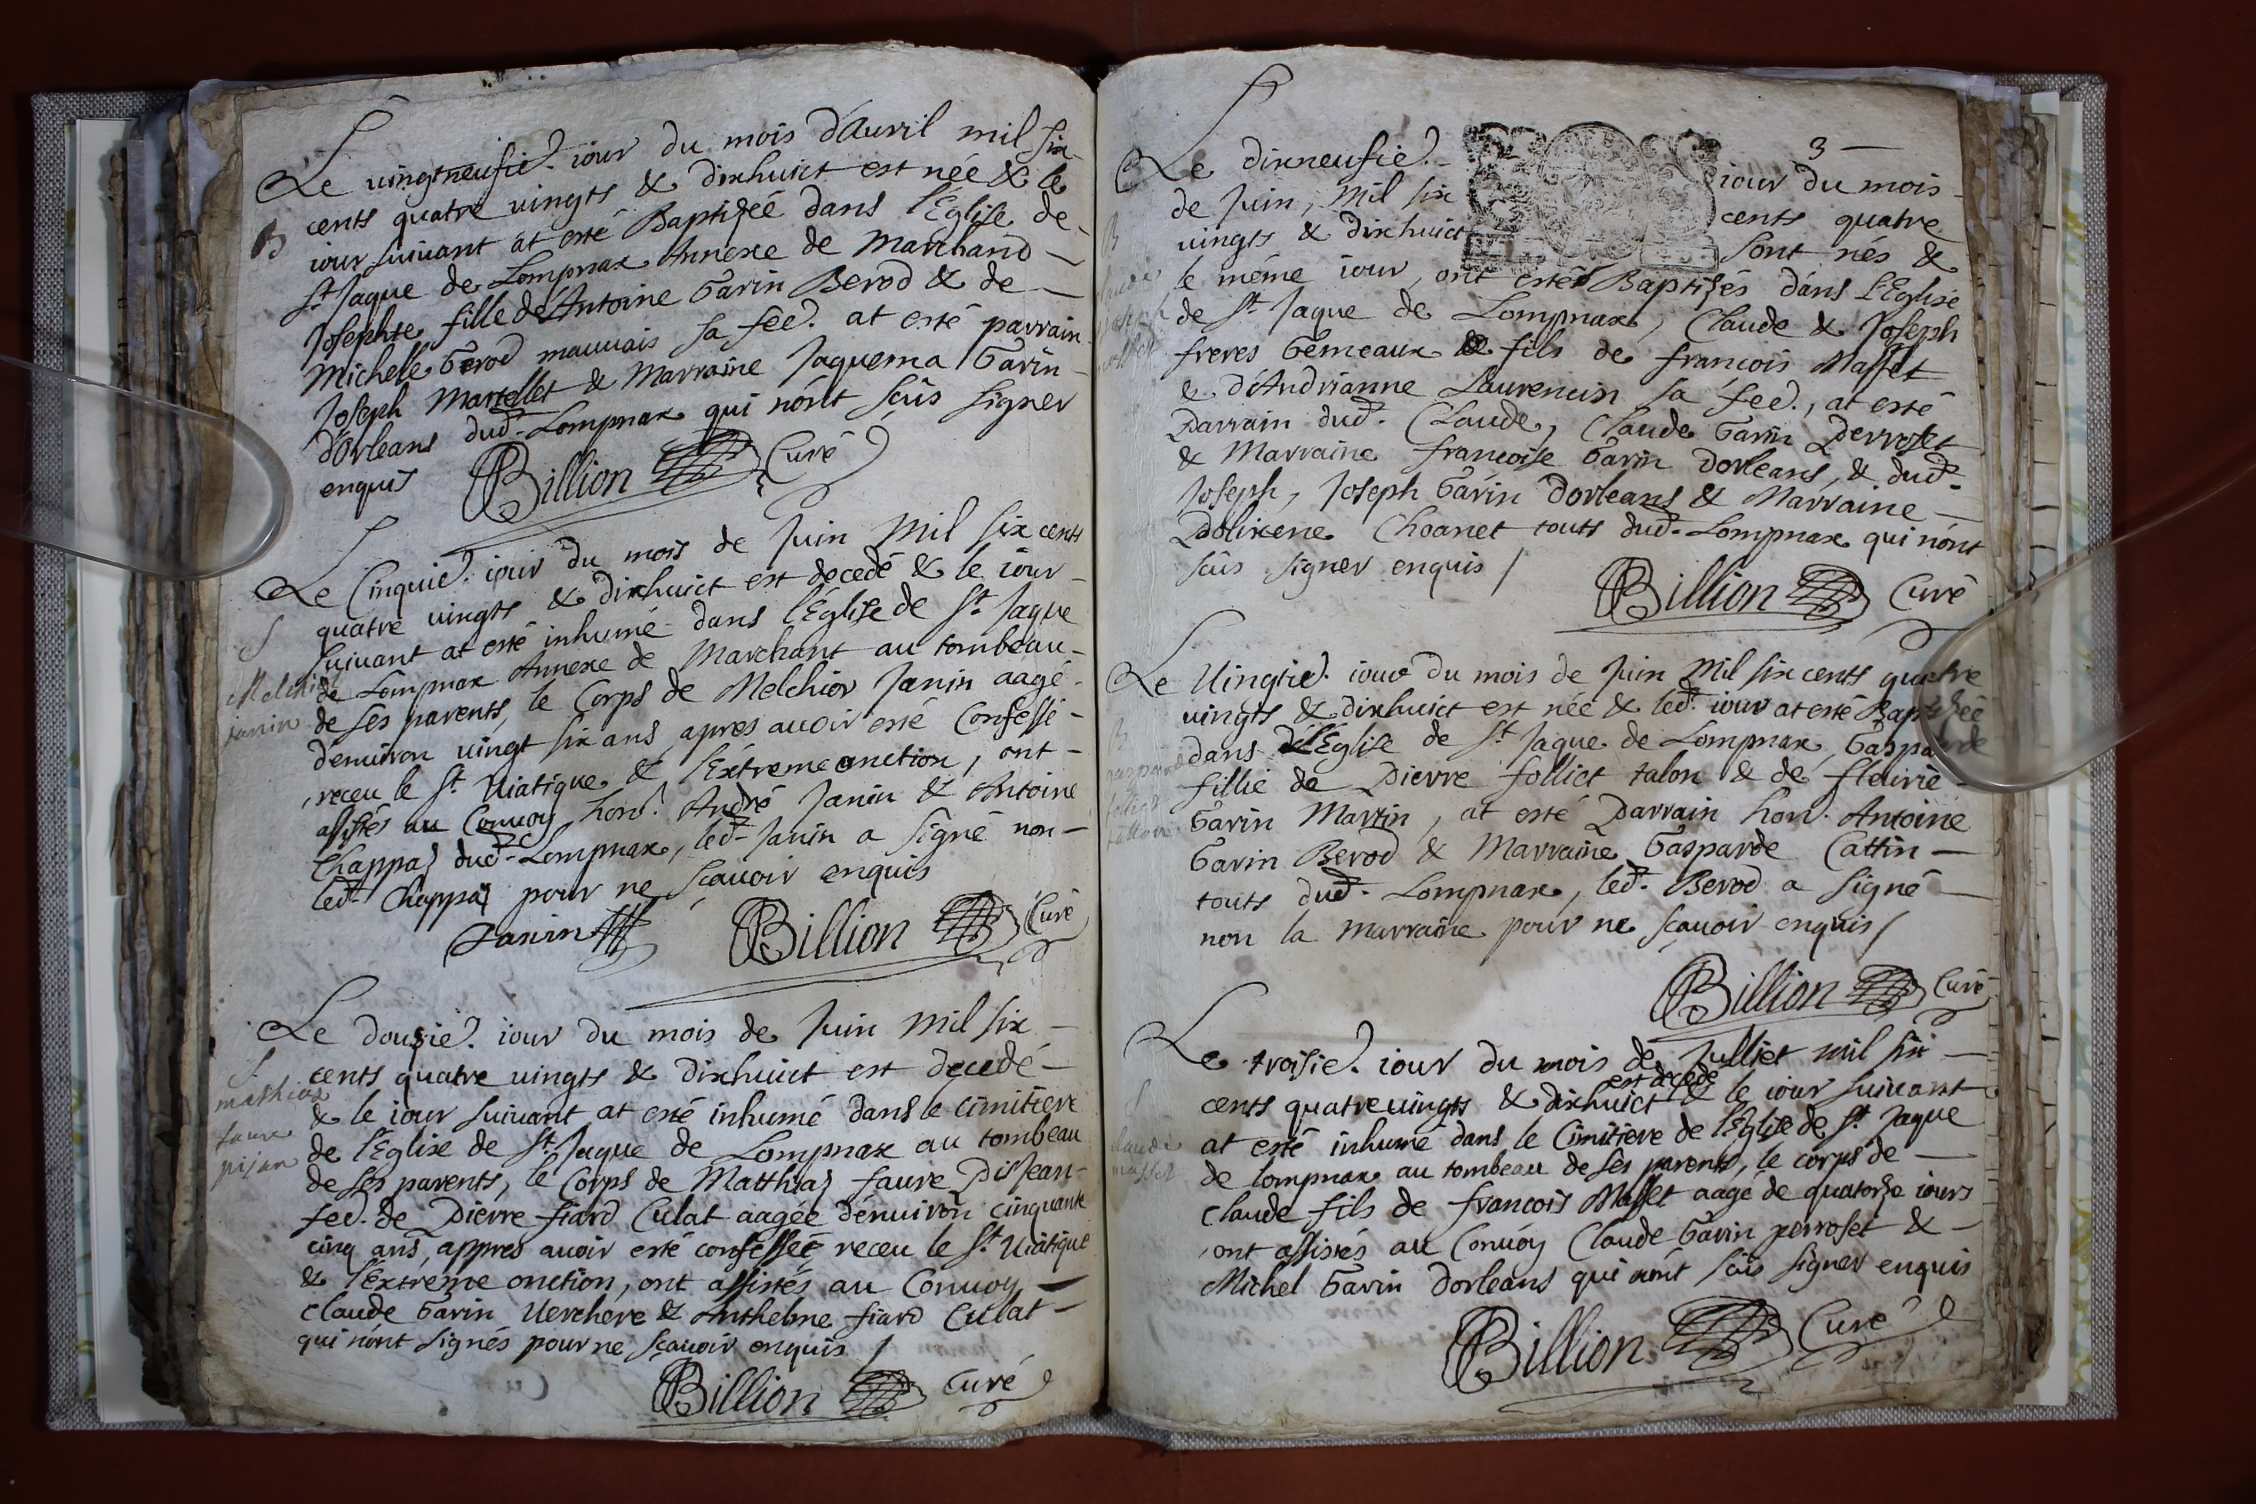 Le vingtneufie. iour du mois d'Auvril mil six
cents quatre vingts & dixhuict est née & le
B
iour suivant at esté Baptizéé dans l'Église de
St Jaque de Lompnax Annexe de Marchand
Josephte fille de Antoine Garin Berod & de
Michelle Gerod mauvais sa fee. at esté parrain
Joseph Martellet & Marraine Jaquema Garin
d'Orleans dud. Lompnax qui n'ónt sçûs signer
enquis Billion Curé
Le Cinquie. iour du mois de Juin Mil six cents
quatre vingts & dixhuict est decedé & le iour
S
suivant at esté inhumé dans l'Église de St Jaque
de Lompnax Annexe de Marchant au tombeau
Melchior
janin
de ses parents, le Corps de Melchior Janin aagé
d'enuiron vingt six ans, apres auoir esté Confessé
receu le St. Viatique & l'Extreme onction, ont
assistés au Convoy hon. André Janin & Antoine
Chappaz dud. Lompnax, led. Janin a signé non
led. Chappaz pour ne sçavoir enquis
Janin Billion Curé
Le douzie. iour du mois de Juin Mil six
S.
cents quatre vingts & dixhuict est decedé
mathias
faure
pijan
& le iour suivant at esté inhumé dans le Cimitiere
de l'Eglise de St Jaque de Lompnax au tombeau
de ses parents, le Corps de Matthiaz faure Disjean
fee. de Pierre fiard Culat aagée d'enuiron cinquante
cinq ans, appres auoir esté confesséé receu le St. Viatique
& l'Extreme onction, ont assistés au Convoy
Claude Garin Verchere & Anthelme fiard Culat
qui n'ónt signés pour ne sçavoir enquis /
Billion Curé
3
Le dixneufie. iour du mois
de Juin, Mil six cents quatre
B
vingts & dixhuict sont nés &
le méme iour, ont estés Baptizés dáns l'Eglise
de St Jaque de Lompnax, Claude & Joseph
freres Gemeaux & fils de francois Masset
& d'Andrianne Laurencin sa fee., at esté
Parrain dud. Claude, Claude Garin Perroset
& Marraine francoise Garin dorleans, & dud.
Joseph, Joseph Garin dorleans & Marraine
Polixene Choanet touts dud. Lompnax qui n'ónt
sçûs signer enquis /
Billion Curé
Le Vingtie. iour du mois de Juin Mil six cents quatre
vingts & dixhuict est née & led. iour at esté Baptizéé
B
dans l'Église de St Jaque de Lompnax, Gasparde
fillie de Pierre folliet talon & de fleurie
Garin Martin, at esté Parrain hon. Antoine
Garin Berod & Marraine Gasparde Cattin
touts dud. Lompnax, led. Berod a signé
non la marraine pour ne sçavoir enquis /
Billion Curé
Le troisie. iour du mois de Julliet mil six
est decedé
cents quatrevingts & dixhuict & le iour suivant
at esté inhumé dans le Cimitiere de l'Eglise de St Jaque
claude
masset
de lompnax au tombeau de ses parents, le corps de
Claude fils de francois Masset aagé de quatorze iours
ont assistés au Convoy Claude Garin perroset &
Michel Garin dorleans qui n'ónt sçûs signer enquis
Billion Curé